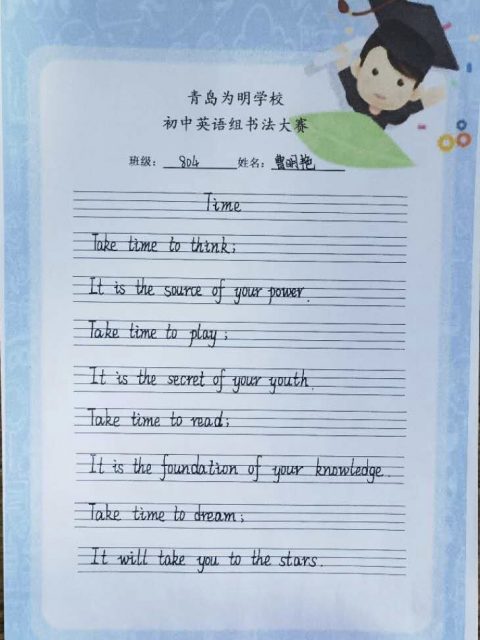 青岛为明学校
初中英语组书法大赛
班级：804 姓名：曹明艳
Time
Take time to think;
It is the source of your power.
Take time to play;
It is the secret of your youth.
Take time to read;
It is the foundation of your knowledge.
Take time to dream;
It will take you to the stars.